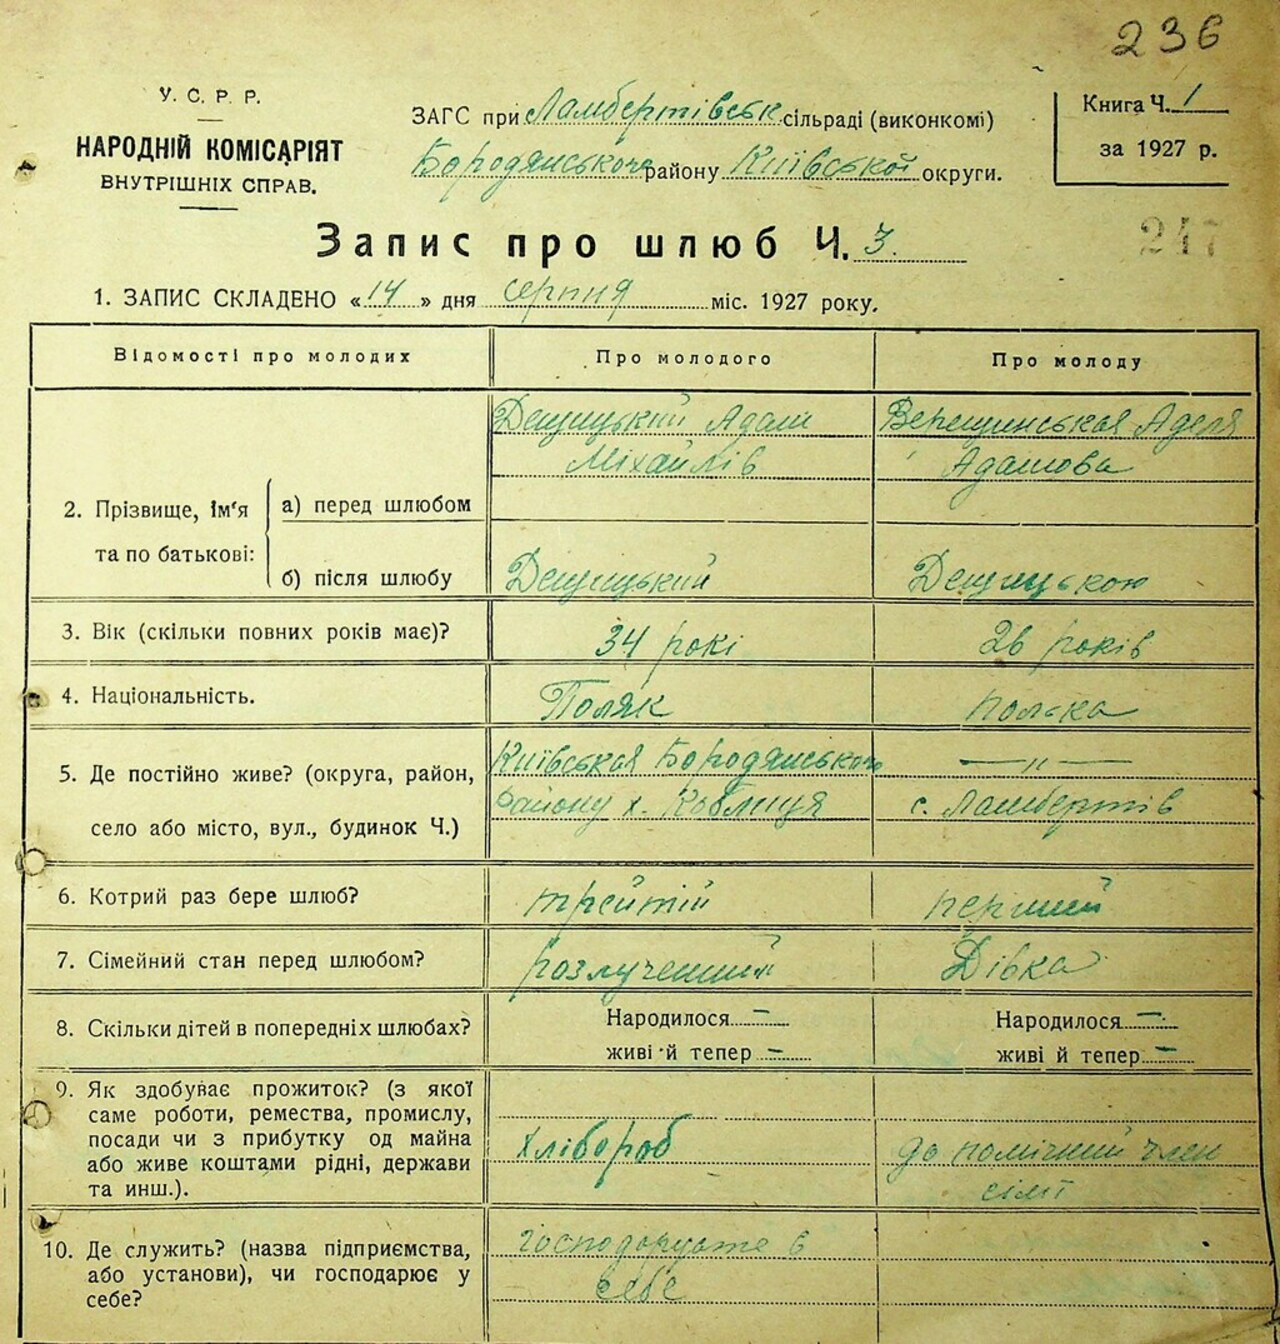 236
У. С. Р. Р.
НАРОДНІЙ КОМІСАРІЯТ
ВНУТРІШНІХ СПРАВ.
ЗАГС при Ламбертівськ сільраді (виконкомі)
Бородянського району Київської округи.
Книга Ч. 1
за 1927 р.
247
Запис про шлюб Ч. 3.
1. ЗАПИС СКЛАДЕНО «14» дня серпня міс. 1927 року.
Відомості про молодих
Про молодого
Про молоду
2. Прізвище, ім'я
та по батькові:
а) перед шлюбом
б) після шлюбу
Дещицький Адам
Міхайлів
Дещицький
Верещинськая Аделя
Адамова
Дещицькою
3. Вік (скільки повних років має)?
34 рокі
26 років
4. Національність.
Поляк
полька
5. Де постійно живе? (округа, район,
село або місто, вул., будинок Ч.)
Київськая Бородянського
району х. Коблиця
— " —
с. Ламбертів
6. Котрий раз бере шлюб?
трейтій
перший
7. Сімейний стан перед шлюбом?
розлученний
Дівка
8. Скільки дітей в попередніх шлюбах?
Народилося —
живі й тепер —
Народилося —
живі й тепер —
9. Як здобуває прожиток? (з якої
саме роботи, ремества, промислу,
посади чи з прибутку од майна
або живе коштами рідні, держави
та инш.).
хлібороб
до помічний член
сімї
10. Де служить? (назва підприємства,
або установи), чи господарює у
себе?
господарує в
себе